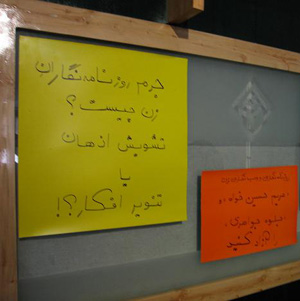 جرم روزنامه‌نگاران
زن چیست؟
تشویش اذهان
یا
تنویر افکار؟!
مریم حسین خواه و
جلوه جواهری
را آزاد کنید